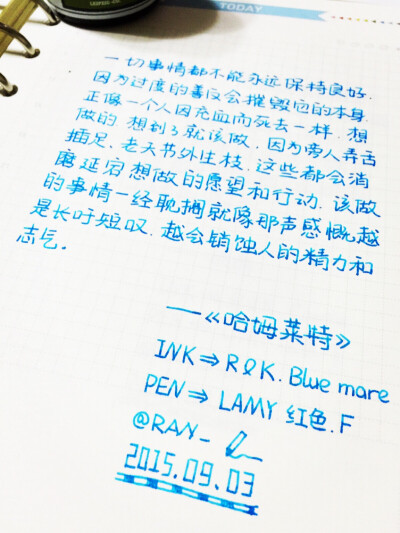 TODAY
一切事情都不能永远保持良好.
因为过度的善反会摧毁它的本身
正像一个人因充血而死去一样.想
做的 想到了就该做.因为旁人弄舌
插足.老天书外生枝.这些都会消
磨延宕想做的愿望和行动.该做
的事情一经耽搁就像那声感慨越
是长吁短叹.越会销蚀人的精力和
志气。
——《哈姆莱特》
INK⇒R&K.Blue mare
PEN⇒LAMY 红色.F
@RAN_
2015.09.03